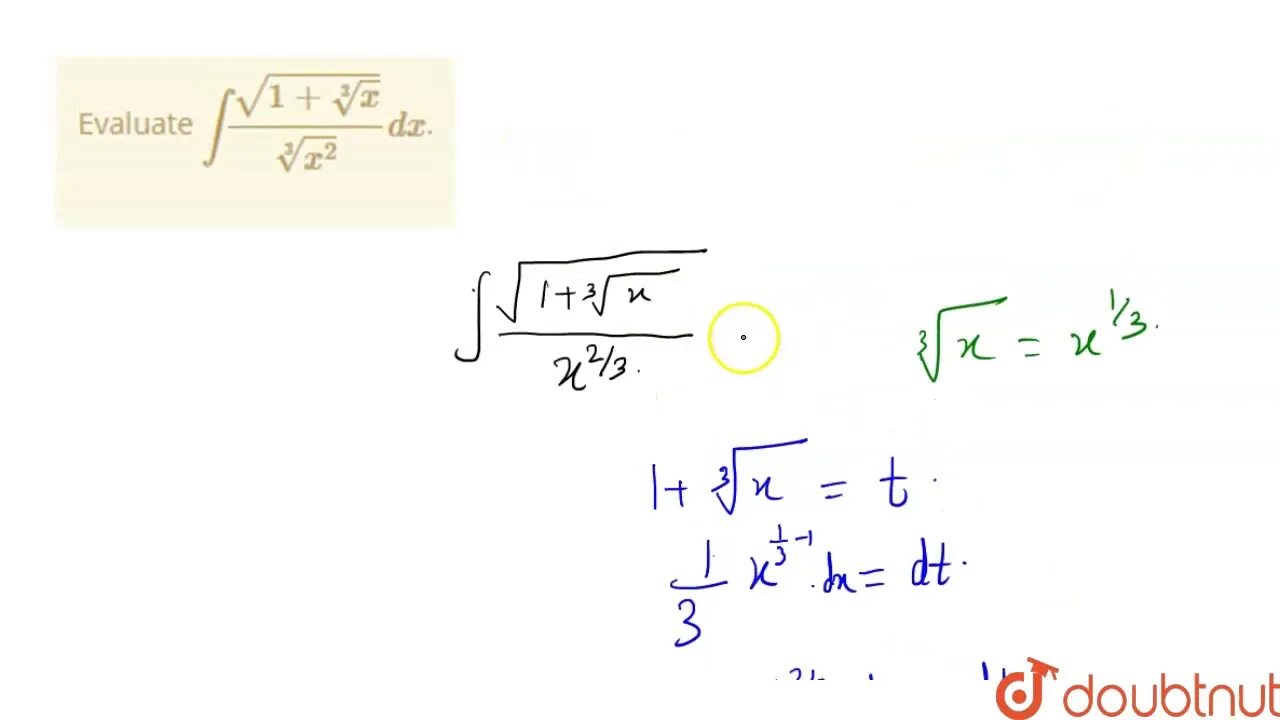 Evaluate ∫ √(1 + ∛x) / ∛(x²) dx.
∫ √(1+∛x) / x^(2/3).
∛x = x^(1/3).
1+ ∛x = t.
1/3 x^(1/3 −1) . dx = dt.
doubtnut